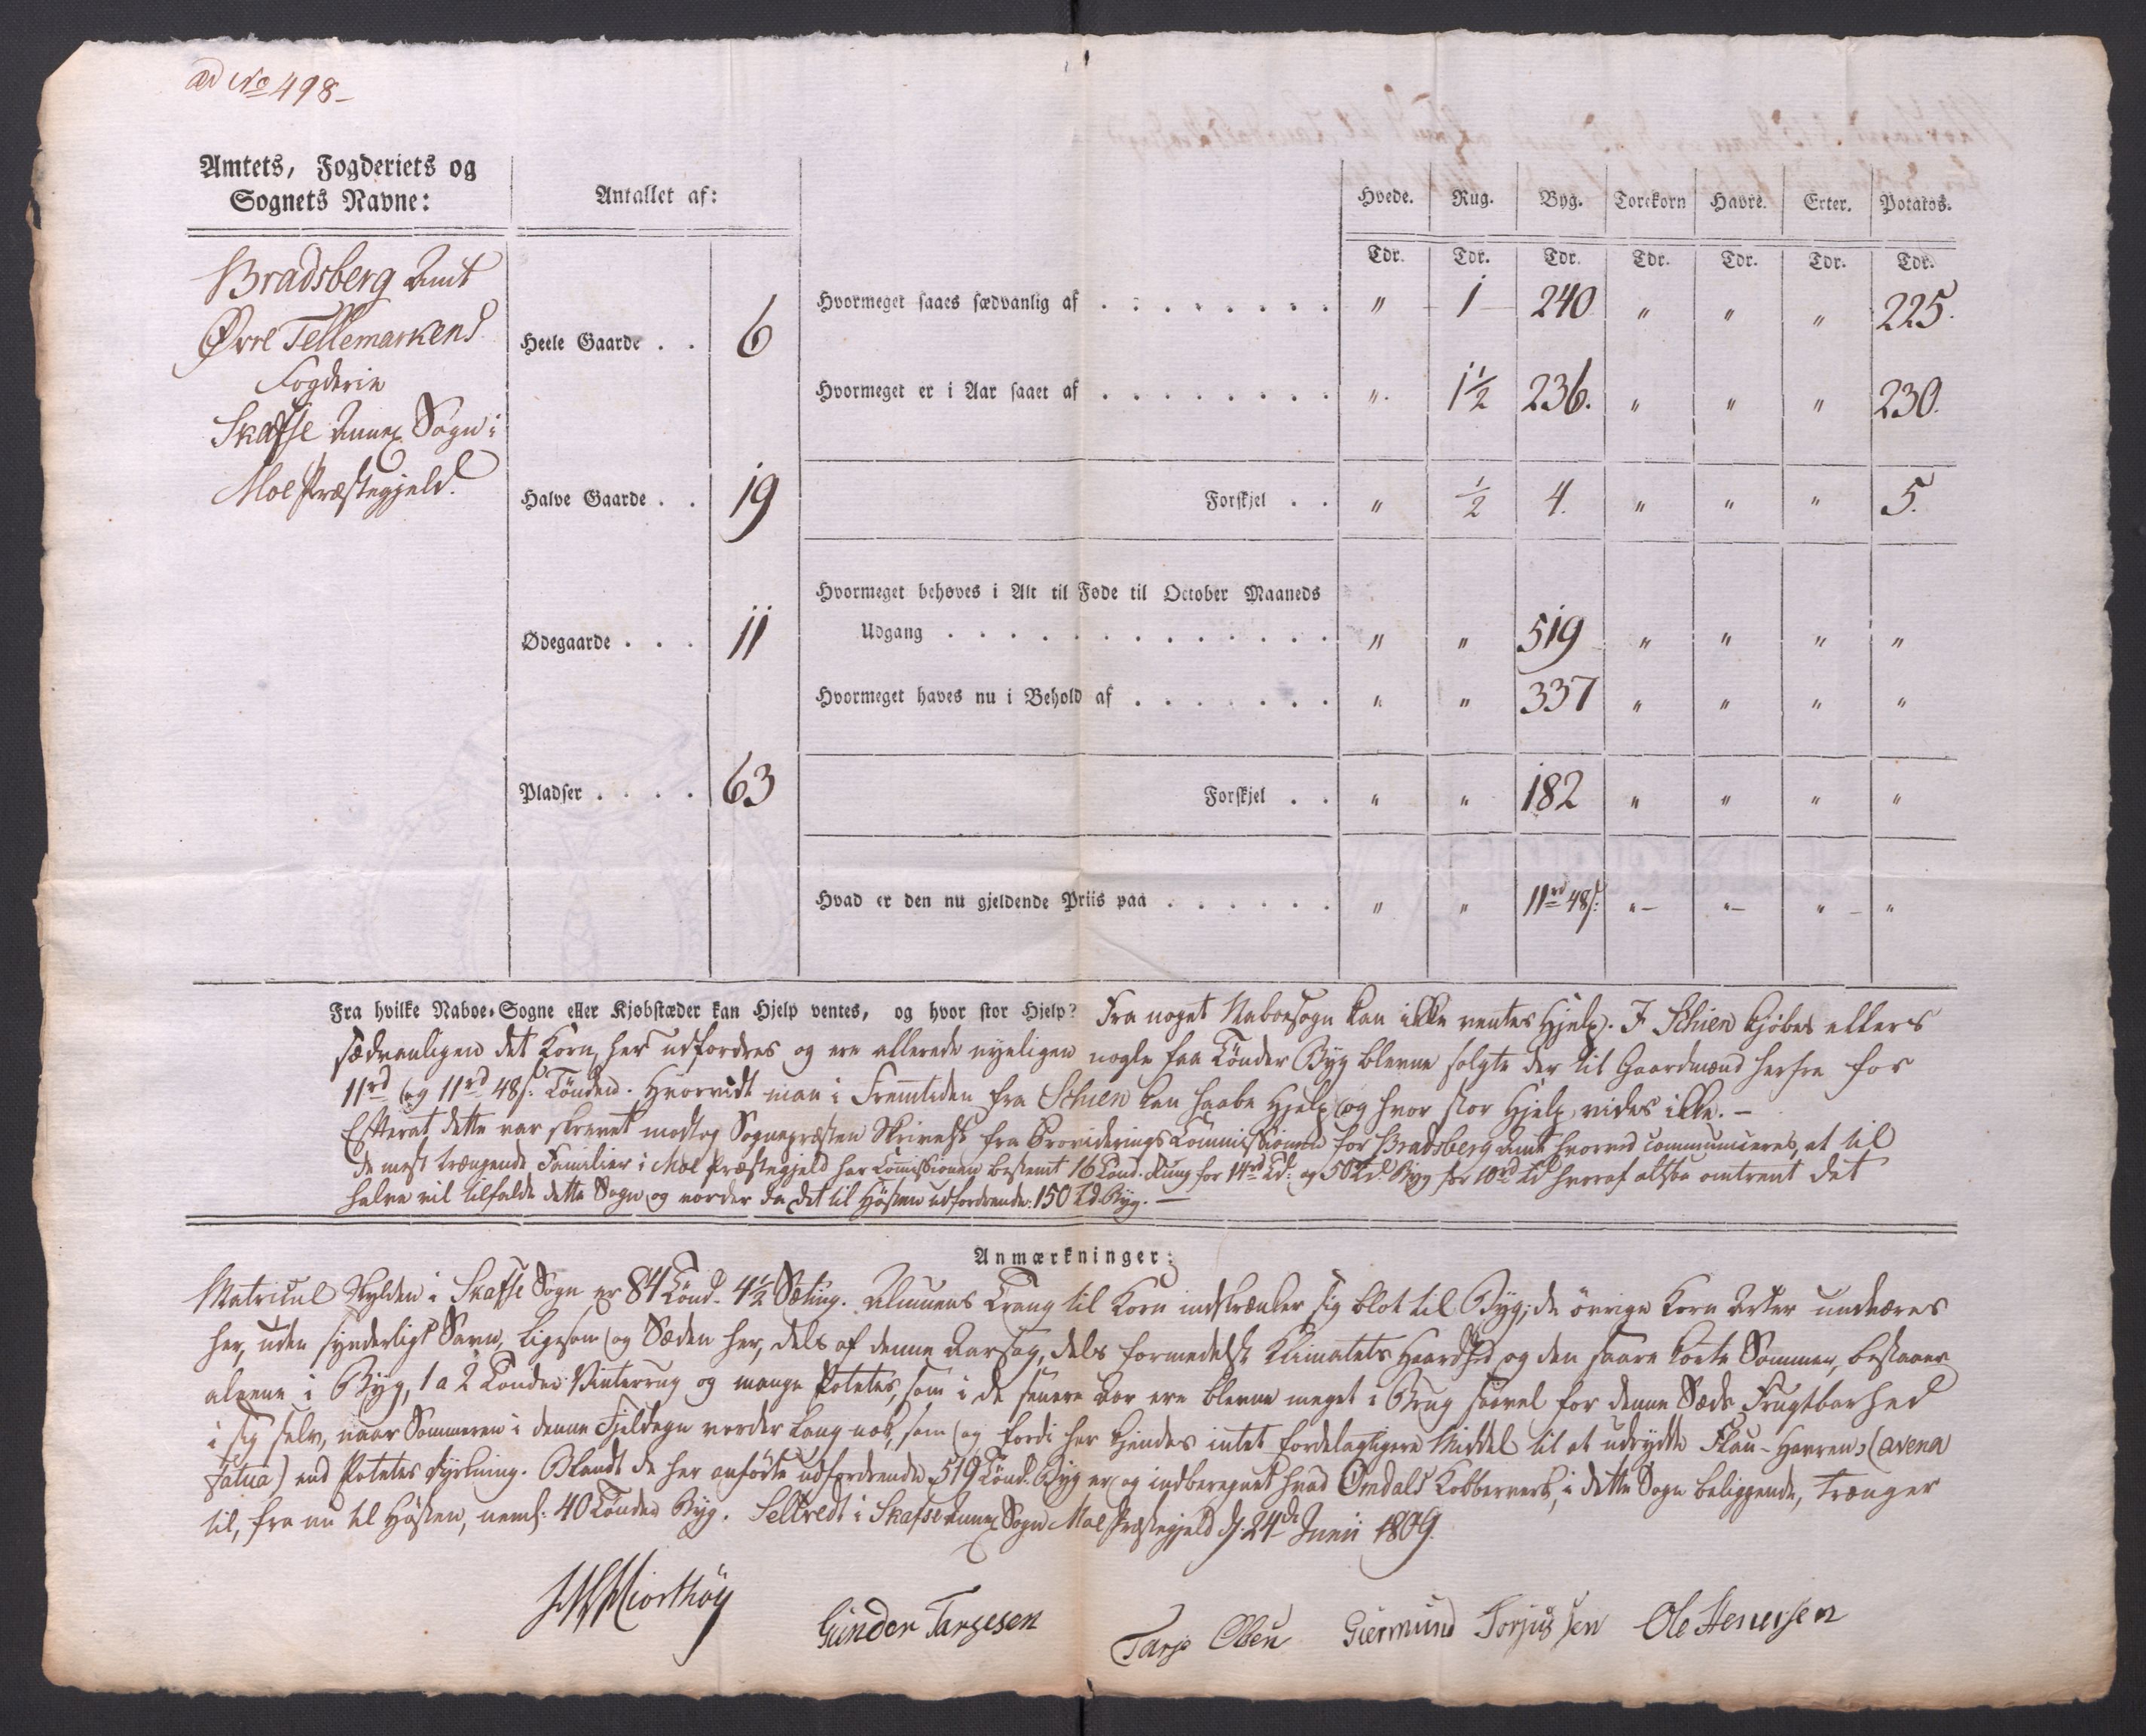 ad No 498-
Amtets, Fogderiets og
Sognets Navne:
Antallet af:
Hvede. Rug. Byg. Torekorn Havre. Erter. Potatos.
Tdr. Tdr. Tdr. Tdr. Tdr. Tdr. Tdr.
Bradsberg Amt
Øvre Tellemarkens
Fogderie
Skafse Annex Sogn i
Moe Præstegjeld.
Heele Gaarde . . 6
Halve Gaarde . . 19
Ødegaarde . . . 11
Pladser . . . . 63
Hvormeget saaes sædvanlig af . . . . . . . . " 1 240 " " " 225.
Hvormeget er i Aar saaet af . . . . . . . . " 1½ 236. " " " 230.
Forskjel . . " ½ 4. " " " 5.
Hvormeget behøves i Alt til Føde til October Maaneds
Udgang . . . . . . . . . . . . . " " 519 " " " "
Hvormeget haves nu i Behold af . . . . . . . " " 337 " " " "
Forskjel . . " " 182 " " " "
Hvad er den nu gjeldende Priis paa . . . . . . " " 11rd 48s: " " " "
Fra hvilke Naboe-Sogne eller Kjøbstæder kan Hjelp ventes, og hvor stor Hjelp? Fra noget Naboesogn kan ikke ventes Hjelp. I Schien kjøbes ellers
sædvanligen det Korn, her udfordres og ere allerede nyeligen nogle faa Tønder Byg blevne solgte der til Gaardmænd herfra for
11rd og 11rd 48s. Tønden. Hvorvidt man i Fremtiden fra Schien kan haabe Hjelp og hvor stor Hjelp, vides ikke. -
Efterat dette var skrevet modtog Sognepræsten Skrivelse fra ProvideringsCommissionen for Bradsberg Amt hvorved communiceres, at til
de mest trængende Familier i Moe Præstegjeld har Commissionen bestemt 16 Tønd. Rug for 14rd Td: og 50 Td. Byg for 10rd Td hvoraf altsaa omtrent det
halve vil tilfalde dette Sogn og vorder da det til Høsten udfordrende: 150 Td. Byg. -
Anmærkninger:
Matricul Skylden i Skafse Sogn er 84 Tønd. 4½ Sætting. Almuens Trang til Korn indskrænker sig blot til Byg; de øvrige Korn Arter undværes
her, uden synderligt Savn, ligesom og Sæden her, dels af denne Aarsag, dels formedelst Klimatets Haardhed og den saare korte Sommer, bestaaer
alene i Byg, 1 a 2 Tønder Vinterrug og mange Potetes, som i de senere Aar ere blevne meget i Brug saavel for denne Sæds Frugtbarhed
i sig selv, naar Sommeren i denne Fjeldegn vorder lang nok, som og fordi her kjendes intet fordelagtigere Middel til at udrydde Flau-Havren (avena
fatua) end Potetes Dyrkning. Blandt de her anførte udfordrende 519 Tønd. Byg er og indberegnet hvad Omdals Kobberverk, i dette Sogn beliggende, trænger
til, fra nu til Høsten, neml: 40 Tønder Byg. Selvedt i Skafse Annex Sogn Moe Præstegjeld d. 24de Junii 1809.
Hiorthøy
Gunder Tarjesen
Tarje Olsen Giermund Torjussen Ole